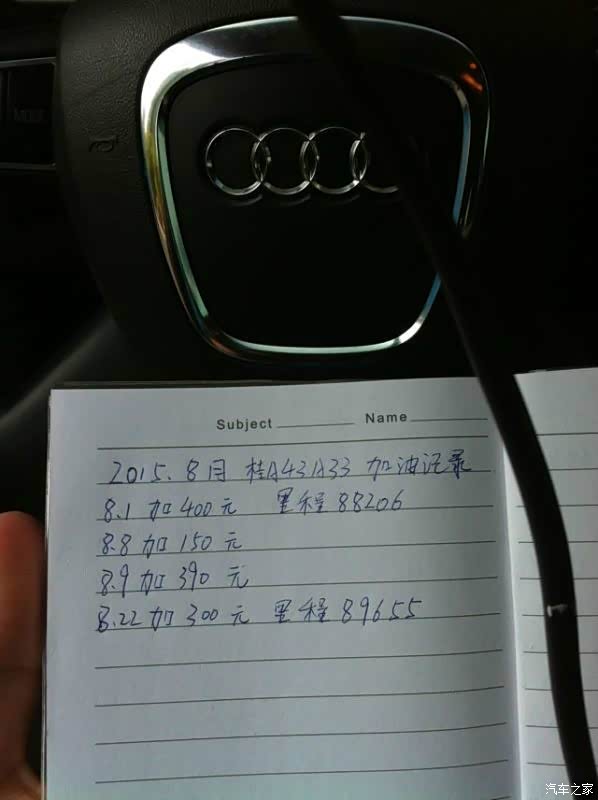 MODE
Subject Name
2015.8月 桂A43A33 加油记录
8.1加400元 里程88206
8.8加150元
8.9加390元
8.22加300元 里程89655
汽车之家